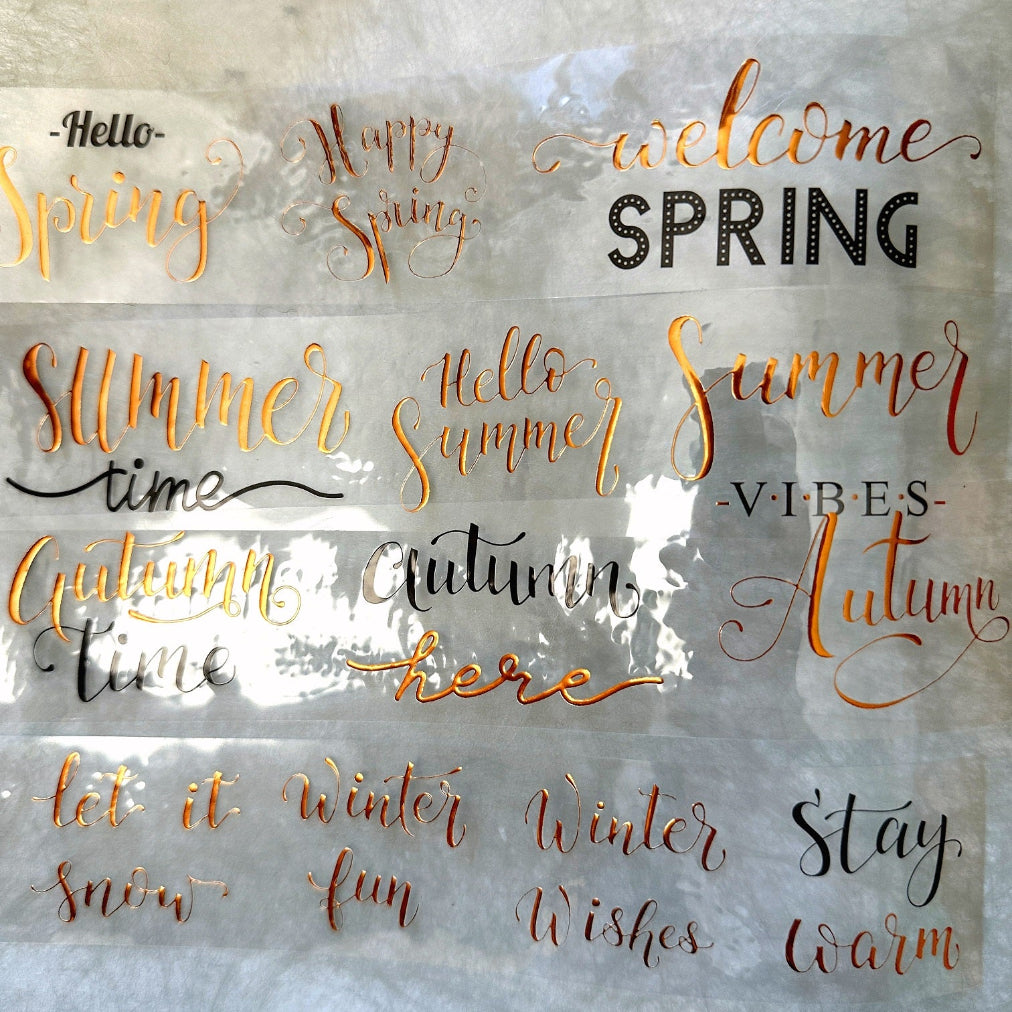 -Hello-
Spring
Happy
Spring
welcome
SPRING
Summer
time
Hello
Summer
Summer
-V·I·B·E·S-
Autumn
time
Autumn
here
Autumn
let it
snow
Winter
fun
Winter
Wishes
Stay
warm